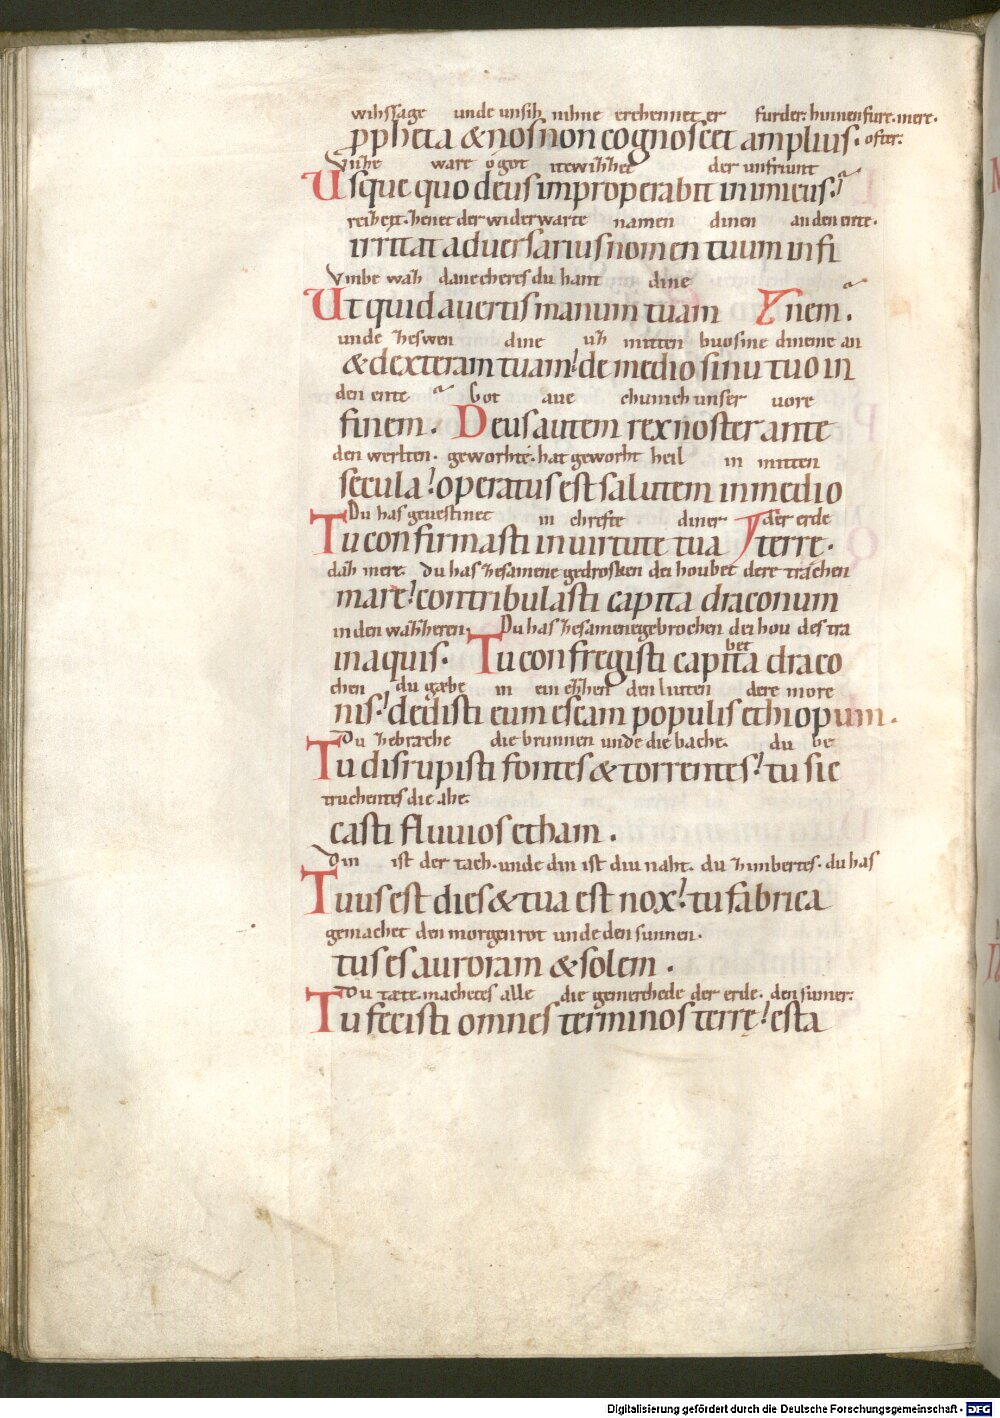 wihssage unde unsih nihne erchennet er furder. hinnenfure. mere.
ppheta & nos non cognoscet amplius. ofter.
Vnhe ware o got itewihhet der unfriunt
Usque quo deus improperabit inimicus?
reiheit. henet der widerwarte namen dinen an den ente.
irritat aduersarius nomen tuum in fi
Vmbe wah danecheres du hant dine
Ut quid auertis manum tuam nem.
unde zeswen dine uz mitten buosme dineme an
& dexteram tuam? de medio sinu tuo in
den ente Got aue chunich unser uore
finem. Deus autem rex noster ante
den werlten. geworhte. hat geworht heil in mitten
secula? operatus est salutem in medio
Du has geuestinet in chrefte diner der erde
Tu confirmasti in uirtute tua terrę.
daz mere. du has zesamene gedrosken dei houbet dere trachen
mare? contribulasti capita draconum
in den wazzeren. Du has zesamenegebrochen dei hou des tra
in aquis. Tu confregisti capita draco
bet
chen du gæbe in ein ezzen den liuten dere more
nis? dedisti eum escam populis ethiopum.
Du zebræche die brunnen unde die bache. du be
Tu disrupisti fontes & torrentes? tu sic
truchentes die ahe.
casti fluuios etham.
Din ist der tach. unde din ist diu naht. du zimbertes. du has
Tuus est dies & tua est nox? tu fabrica
gemachet den morgenrot unde den sunnen.
tus es auroram & solem.
Du tæte. machetes alle die gemerchede der erde. den sumer.
Tu fecisti omnes terminos terrę? esta
Digitalisierung gefördert durch die Deutsche Forschungsgemeinschaft - DFG